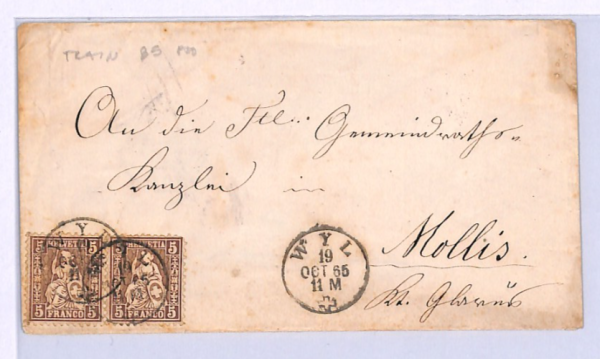 TRAIN 85
An die Tit. Gemeindraths-
Kanzlei in
Mollis.
Kt. Glarus
WYL
19
OCT 65
11 M
5 HELVETIA 5
5 FRANCO 5
5 HELVETIA 5
5 FRANCO 5